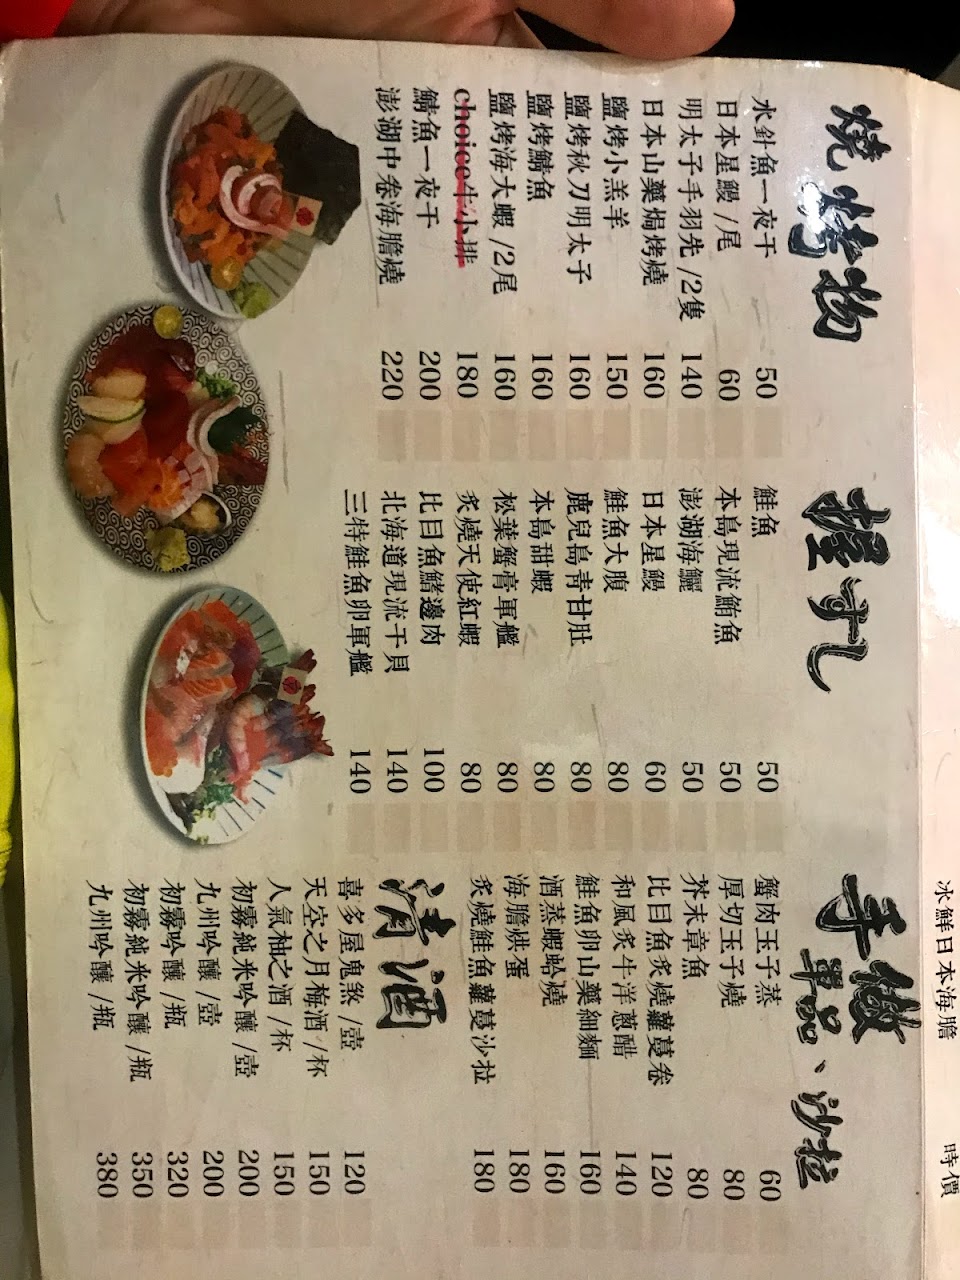 燒烤物
水針魚一夜干 50
日本星鰻 /尾 60
明太子手羽先 /2隻 140
日本山藥焗烤燒 160
鹽烤小羔羊 150
鹽烤秋刀明太子 160
鹽烤鯖魚 160
鹽烤海大蝦 /2尾 160
choice牛小排 180
鯖魚一夜干 200
澎湖中卷海膽燒 220
握すし
鮭魚 50
本島現流鮪魚 50
澎湖海鱺 50
日本星鰻 60
鮭魚大腹 80
鹿兒島青甘肚 80
本島甜蝦 80
松葉蟹膏軍艦 80
炙燒天使紅蝦 80
比目魚鰭邊肉 100
北海道現流干貝 140
三特鮭魚卵軍艦 140
手做單品、沙拉
蟹肉玉子蒸 60
厚切玉子燒 80
芥末章魚 80
比目魚炙燒蘿蔓卷 120
和風炙牛洋蔥醋 140
鮭魚卵山藥細麵 160
酒蒸蝦蛤燒 160
海膽烘蛋 180
炙燒鮭魚蘿蔓沙拉 180
清酒
喜多屋鬼煞 /壺 120
天空之月梅酒 /杯 150
人氣柚之酒 /杯 150
初霧純米吟釀 /壺 200
九州吟釀 /壺 200
初霧吟釀 /瓶 320
初霧純米吟釀 /瓶 350
九州吟釀 /瓶 380
冰鮮日本海膽 時價